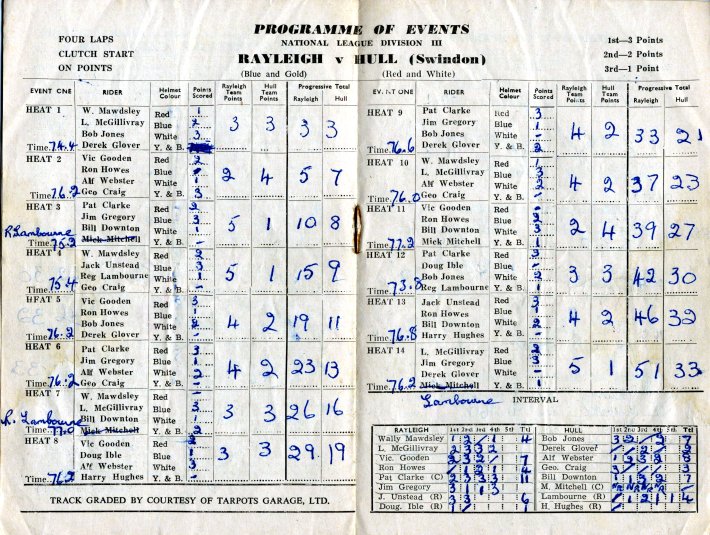 FOUR LAPS
CLUTCH START
ON POINTS
PROGRAMME OF EVENTS
NATIONAL LEAGUE DIVISION III
RAYLEIGH v HULL (Swindon)
(Blue and Gold) (Red and White)
1st—3 Points
2nd—2 Points
3rd—1 Point
EVENT ONE RIDER Helmet Colour Points Scored Rayleigh Team Points Hull Team Points Progressive Total Rayleigh Hull
HEAT 1 W. Mawdsley Red 1
L. McGillivray Blue 2
Bob Jones White 3
Time 74.4 Derek Glover Y. & B.
3 3 3 3
HEAT 2 Vic Gooden Red 2
Ron Howes Blue -
Alf Webster White 1
Time 76.2 Geo Craig Y. & B. 3
2 4 5 7
HEAT 3 Pat Clarke Red 2
Jim Gregory Blue 3
R Lambourne Bill Downton White 1
Time 75.2 Mick Mitchell Y. & B. -
5 1 10 8
HEAT 4 W. Mawdsley Red 2
Jack Unstead Blue 3
Reg Lambourne White 1
Time 75.4 Geo Craig Y. & B. -
5 1 15 9
HEAT 5 Vic Gooden Red 3
Ron Howes Blue 1
Bob Jones White -
Time 76.2 Derek Glover Y. & B. 2
4 2 19 11
HEAT 6 Pat Clarke Red 3
Jim Gregory Blue 1
Alf Webster White 2
Time 76.2 Geo Craig Y. & B. -
4 2 23 13
HEAT 7 W. Mawdsley Red -
L. McGillivray Blue 3
R. Lambourne Bill Downton White 1
Time 77.0 Mick Mitchell Y. & B. 2
3 3 26 16
HEAT 8 Vic Gooden Red 2
Doug Ible Blue 1
Alf Webster White 3
Time 76.2 Harry Hughes Y. & B. -
3 3 29 19
TRACK GRADED BY COURTESY OF TARPOTS GARAGE, LTD.
EVENT ONE RIDER Helmet Colour Points Scored Rayleigh Team Points Hull Team Points Progressive Total Rayleigh Hull
HEAT 9 Pat Clarke Red 3
Jim Gregory Blue 1
Bob Jones White -
Time 76.6 Derek Glover Y. & B. 2
4 2 33 21
HEAT 10 W. Mawdsley Red 1
L. McGillivray Blue 3
Alf Webster White 2
Time 76.0 Geo Craig Y. & B. -
4 2 37 23
HEAT 11 Vic Gooden Red -
Ron Howes Blue 2
Bill Downton White 3
Time 77.2 Mick Mitchell Y. & B. 1
2 4 39 27
HEAT 12 Pat Clarke Red 3
Doug Ible Blue -
Bob Jones White 2
Time 73.8 Reg Lambourne Y. & B. 1
3 3 42 30
HEAT 13 Jack Unstead Red 3
Ron Howes Blue 1
Bill Downton White 2
Time 76.8 Harry Hughes Y. & B. -
4 2 46 32
HEAT 14 L. McGillivray Red
Jim Gregory Blue
Derek Glover White
Time 76.2 Mick Mitchell Y. & B. -
5 1 51 33
Lambourne INTERVAL
RAYLEIGH 1st 2nd 3rd 4th 5th Ttl HULL 1st 2nd 3rd 4th 5th Ttl
Wally Mawdsley 1 2 / 1 4 Bob Jones 7
L. McGillivray Derek Glover
Vic Gooden 7 Alf Webster 8
Ron Howes 4 Geo. Craig 3
Pat Clarke (C) 2 3 3 3 11 Bill Downton 1 1 3 2 7
Jim Gregory 3 1 1 3 M. Mitchell (C)
J. Unstead (R) 3 3 6 Lambourne (R) 4
Doug. Ible (R) 1 / 1 H. Hughes (R) / /